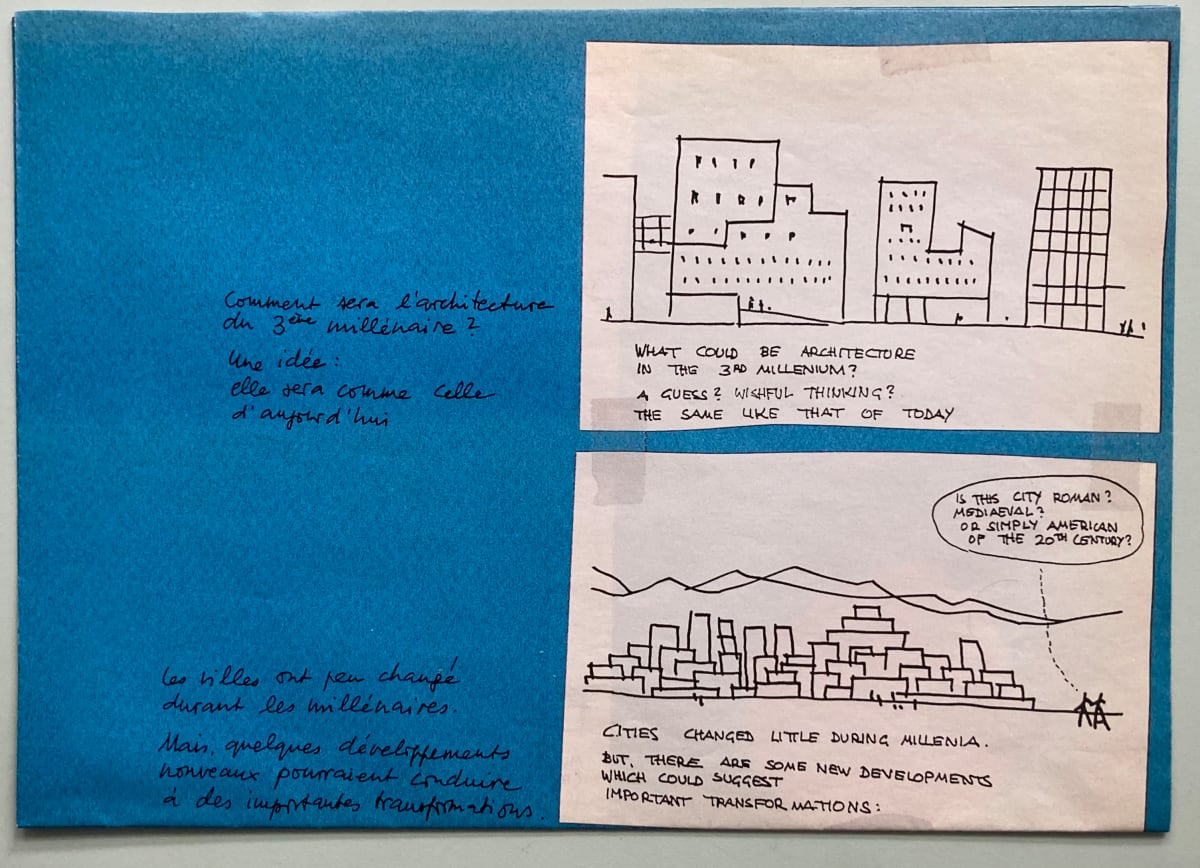 Comment sera l'architecture
du 3ème millénaire?
Une idée:
elle sera comme celle
d'aujourd'hui
WHAT COULD BE ARCHITECTURE
IN THE 3RD MILLENIUM?
A GUESS? WISHFUL THINKING?
THE SAME LIKE THAT OF TODAY
IS THIS CITY ROMAN?
MEDIAEVAL?
OR SIMPLY AMERICAN
OF THE 20TH CENTURY?
Les villes ont peu changé
durant les millénaires.
Mais, quelques développements
nouveaux pourraient conduire
à des importantes transformations.
CITIES CHANGED LITTLE DURING MILLENIA.
BUT, THERE ARE SOME NEW DEVELOPMENTS
WHICH COULD SUGGEST
IMPORTANT TRANSFORMATIONS: